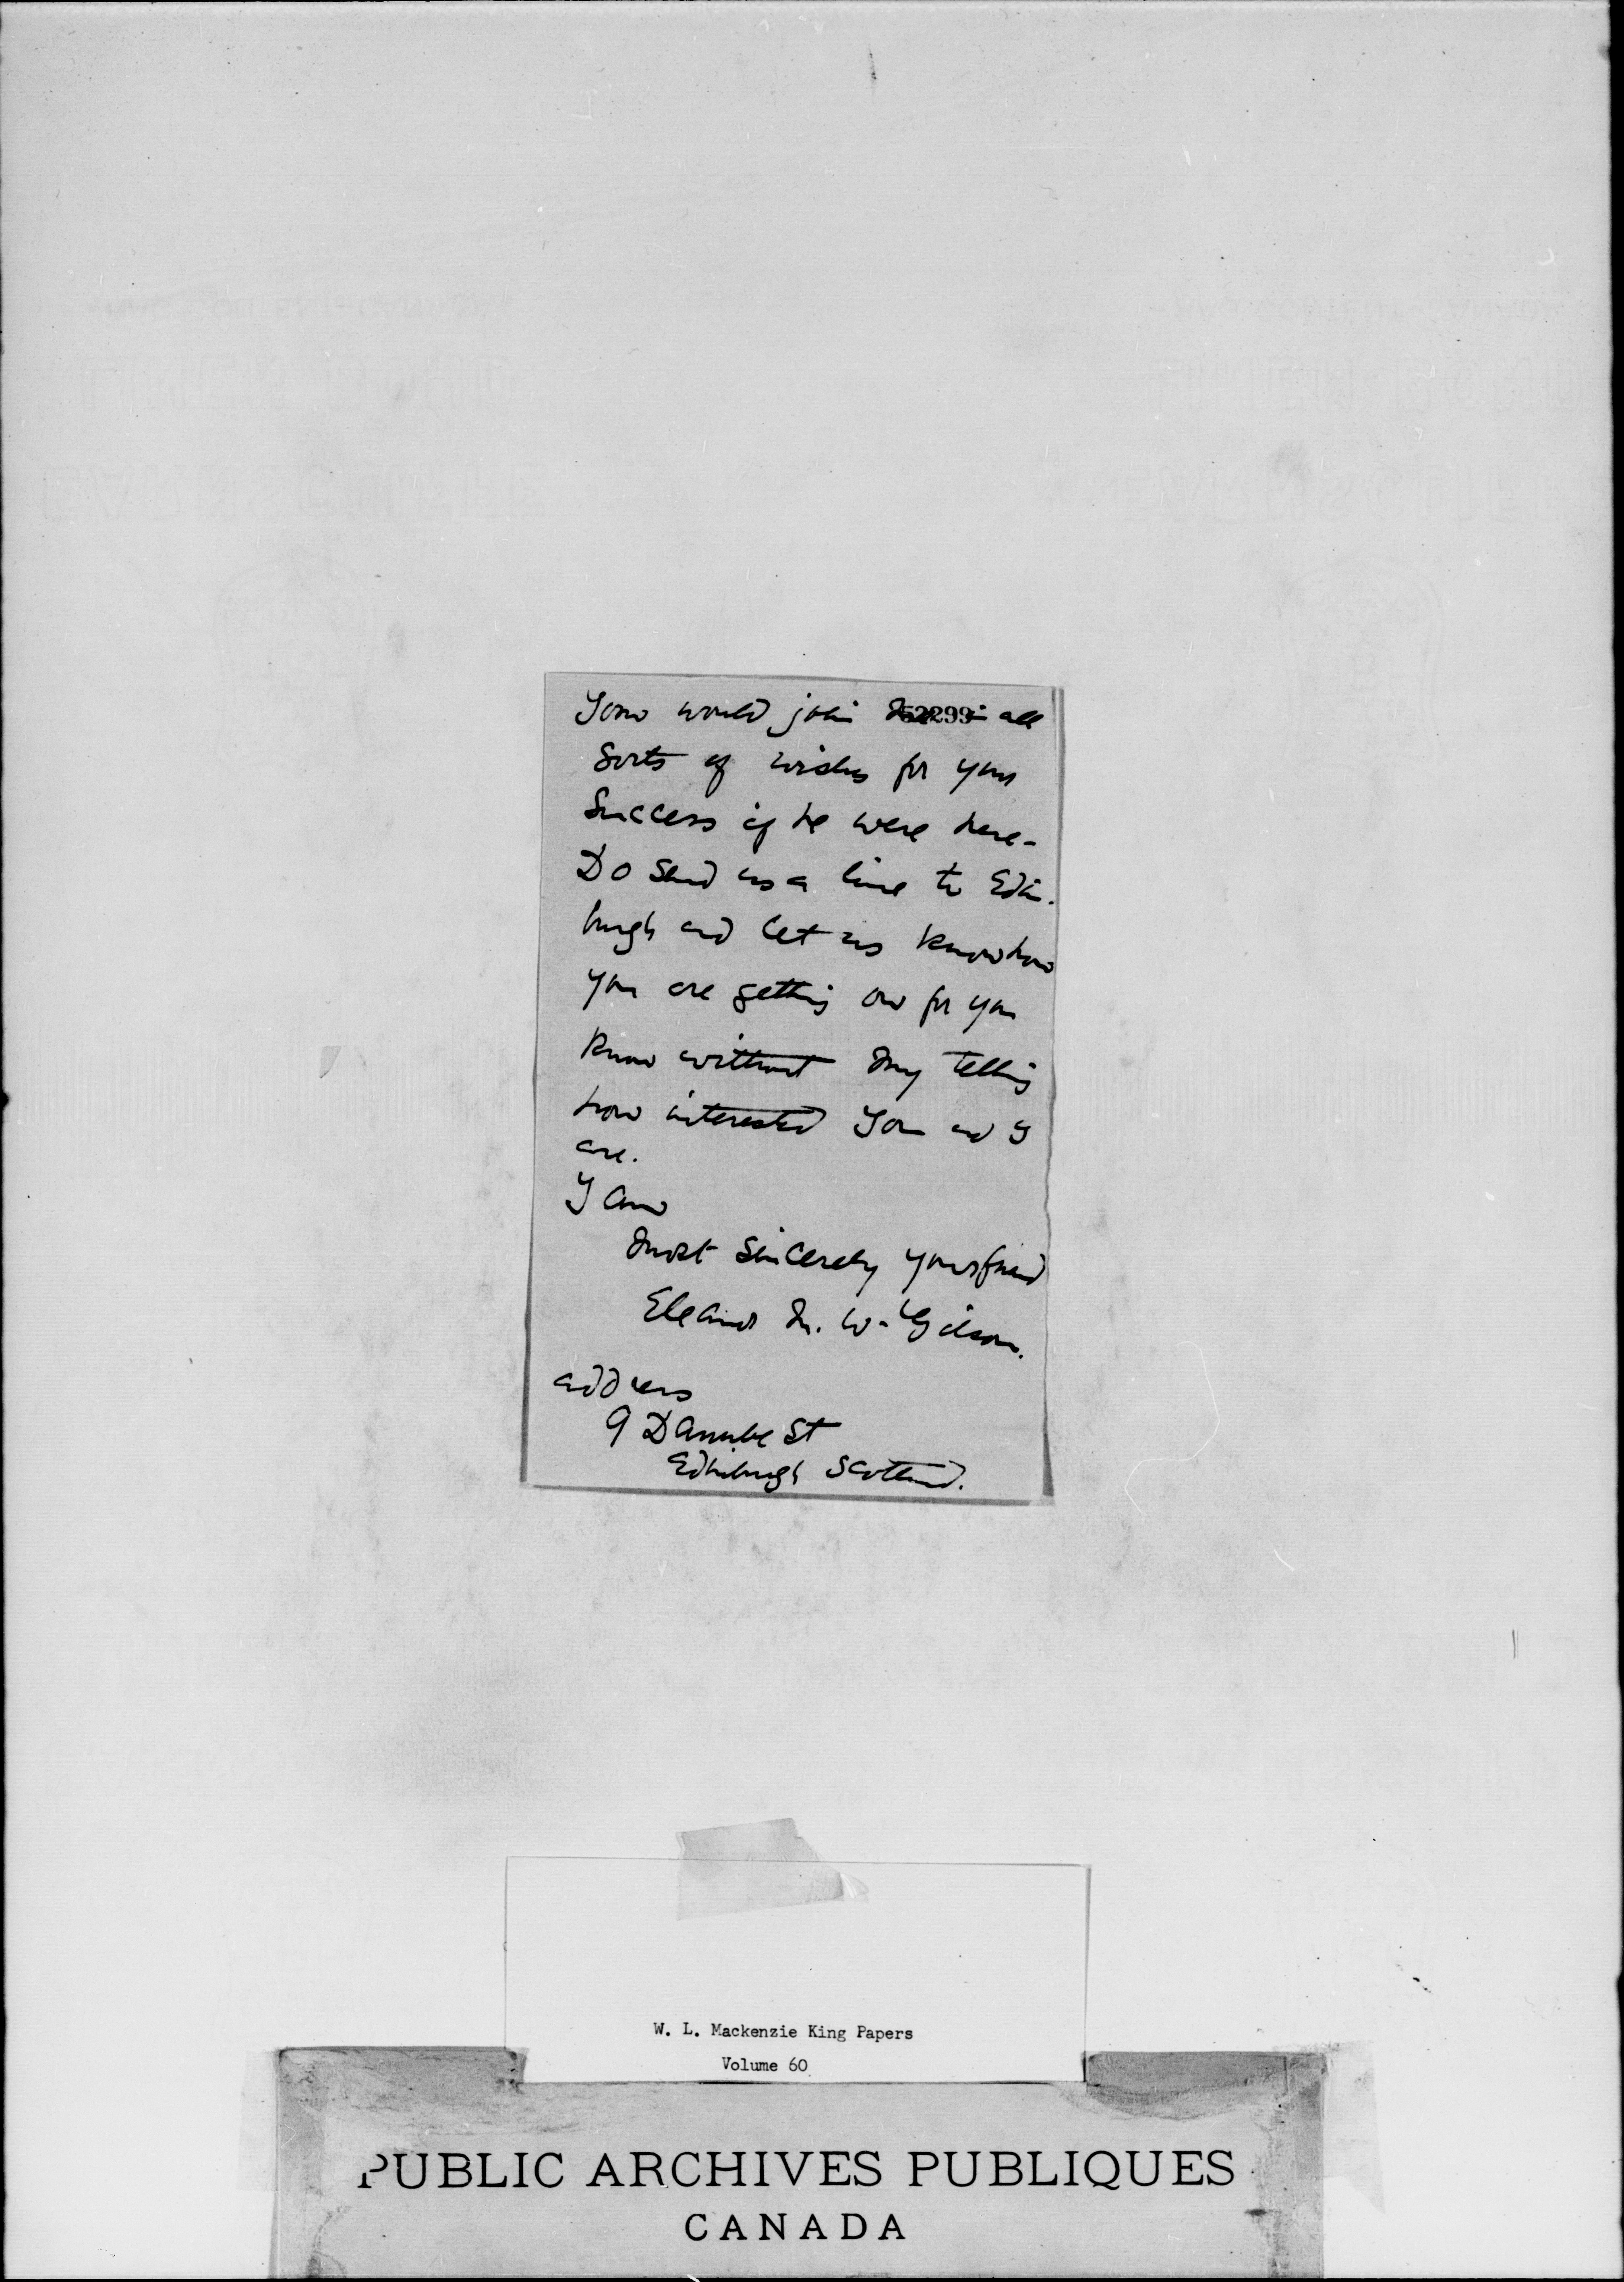 Tom would join me in all
52299
sorts of wishes for your
success if he were here -
Do send us a line to Edin-
burgh and let us know how
you are getting on for you
know without my telling
how interested Tom and I
are.
I am
Most sincerely your friend
Eleanor M. W. Gibson.
address
9 Danube St
Edinburgh Scotland.
W. L. Mackenzie King Papers
Volume 60
PUBLIC ARCHIVES PUBLIQUES
CANADA